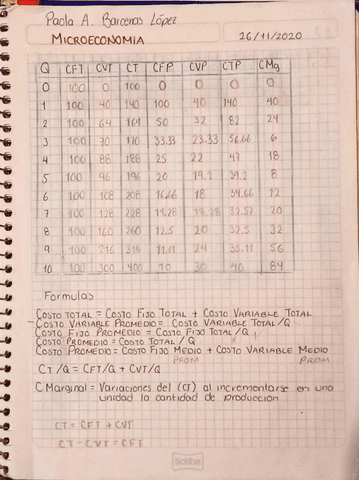 Paola A. Barcenas López
MICROECONOMIA 26/11/2020
Q CFT CVT CT CFP CVP CTP CMg
0 100 0 100 0 0 0 0
1 100 40 140 100 40 140 40
2 100 64 164 50 32 82 24
3 100 70 170 33.33 23.33 56.66 6
4 100 88 188 25 22 47 18
5 100 96 196 20 19.2 39.2 8
6 100 108 208 16.66 18 34.66 12
7 100 128 228 14.28 18.28 32.57 20
8 100 160 260 12.5 20 32.5 32
9 100 216 316 11.11 24 35.11 56
10 100 300 400 10 30 40 84
Formulas
COSTO TOTAL = COSTO FIJO TOTAL + COSTO VARIABLE TOTAL
COSTO VARIABLE PROMEDIO = COSTO VARIABLE TOTAL/Q
COSTO FIJO PROMEDIO = COSTO FIJO TOTAL/Q
COSTO PROMEDIO = COSTO TOTAL/Q
COSTO PROMEDIO = COSTO FIJO MEDIO + COSTO VARIABLE MEDIO
PROM PROM
CT/Q = CFT/Q + CVT/Q
C MARGINAL = Variaciones del (CT) al incrementarse en una
unidad la cantidad de produccion
CT = CFT + CVT
CT - CVT = CFT
Scribe